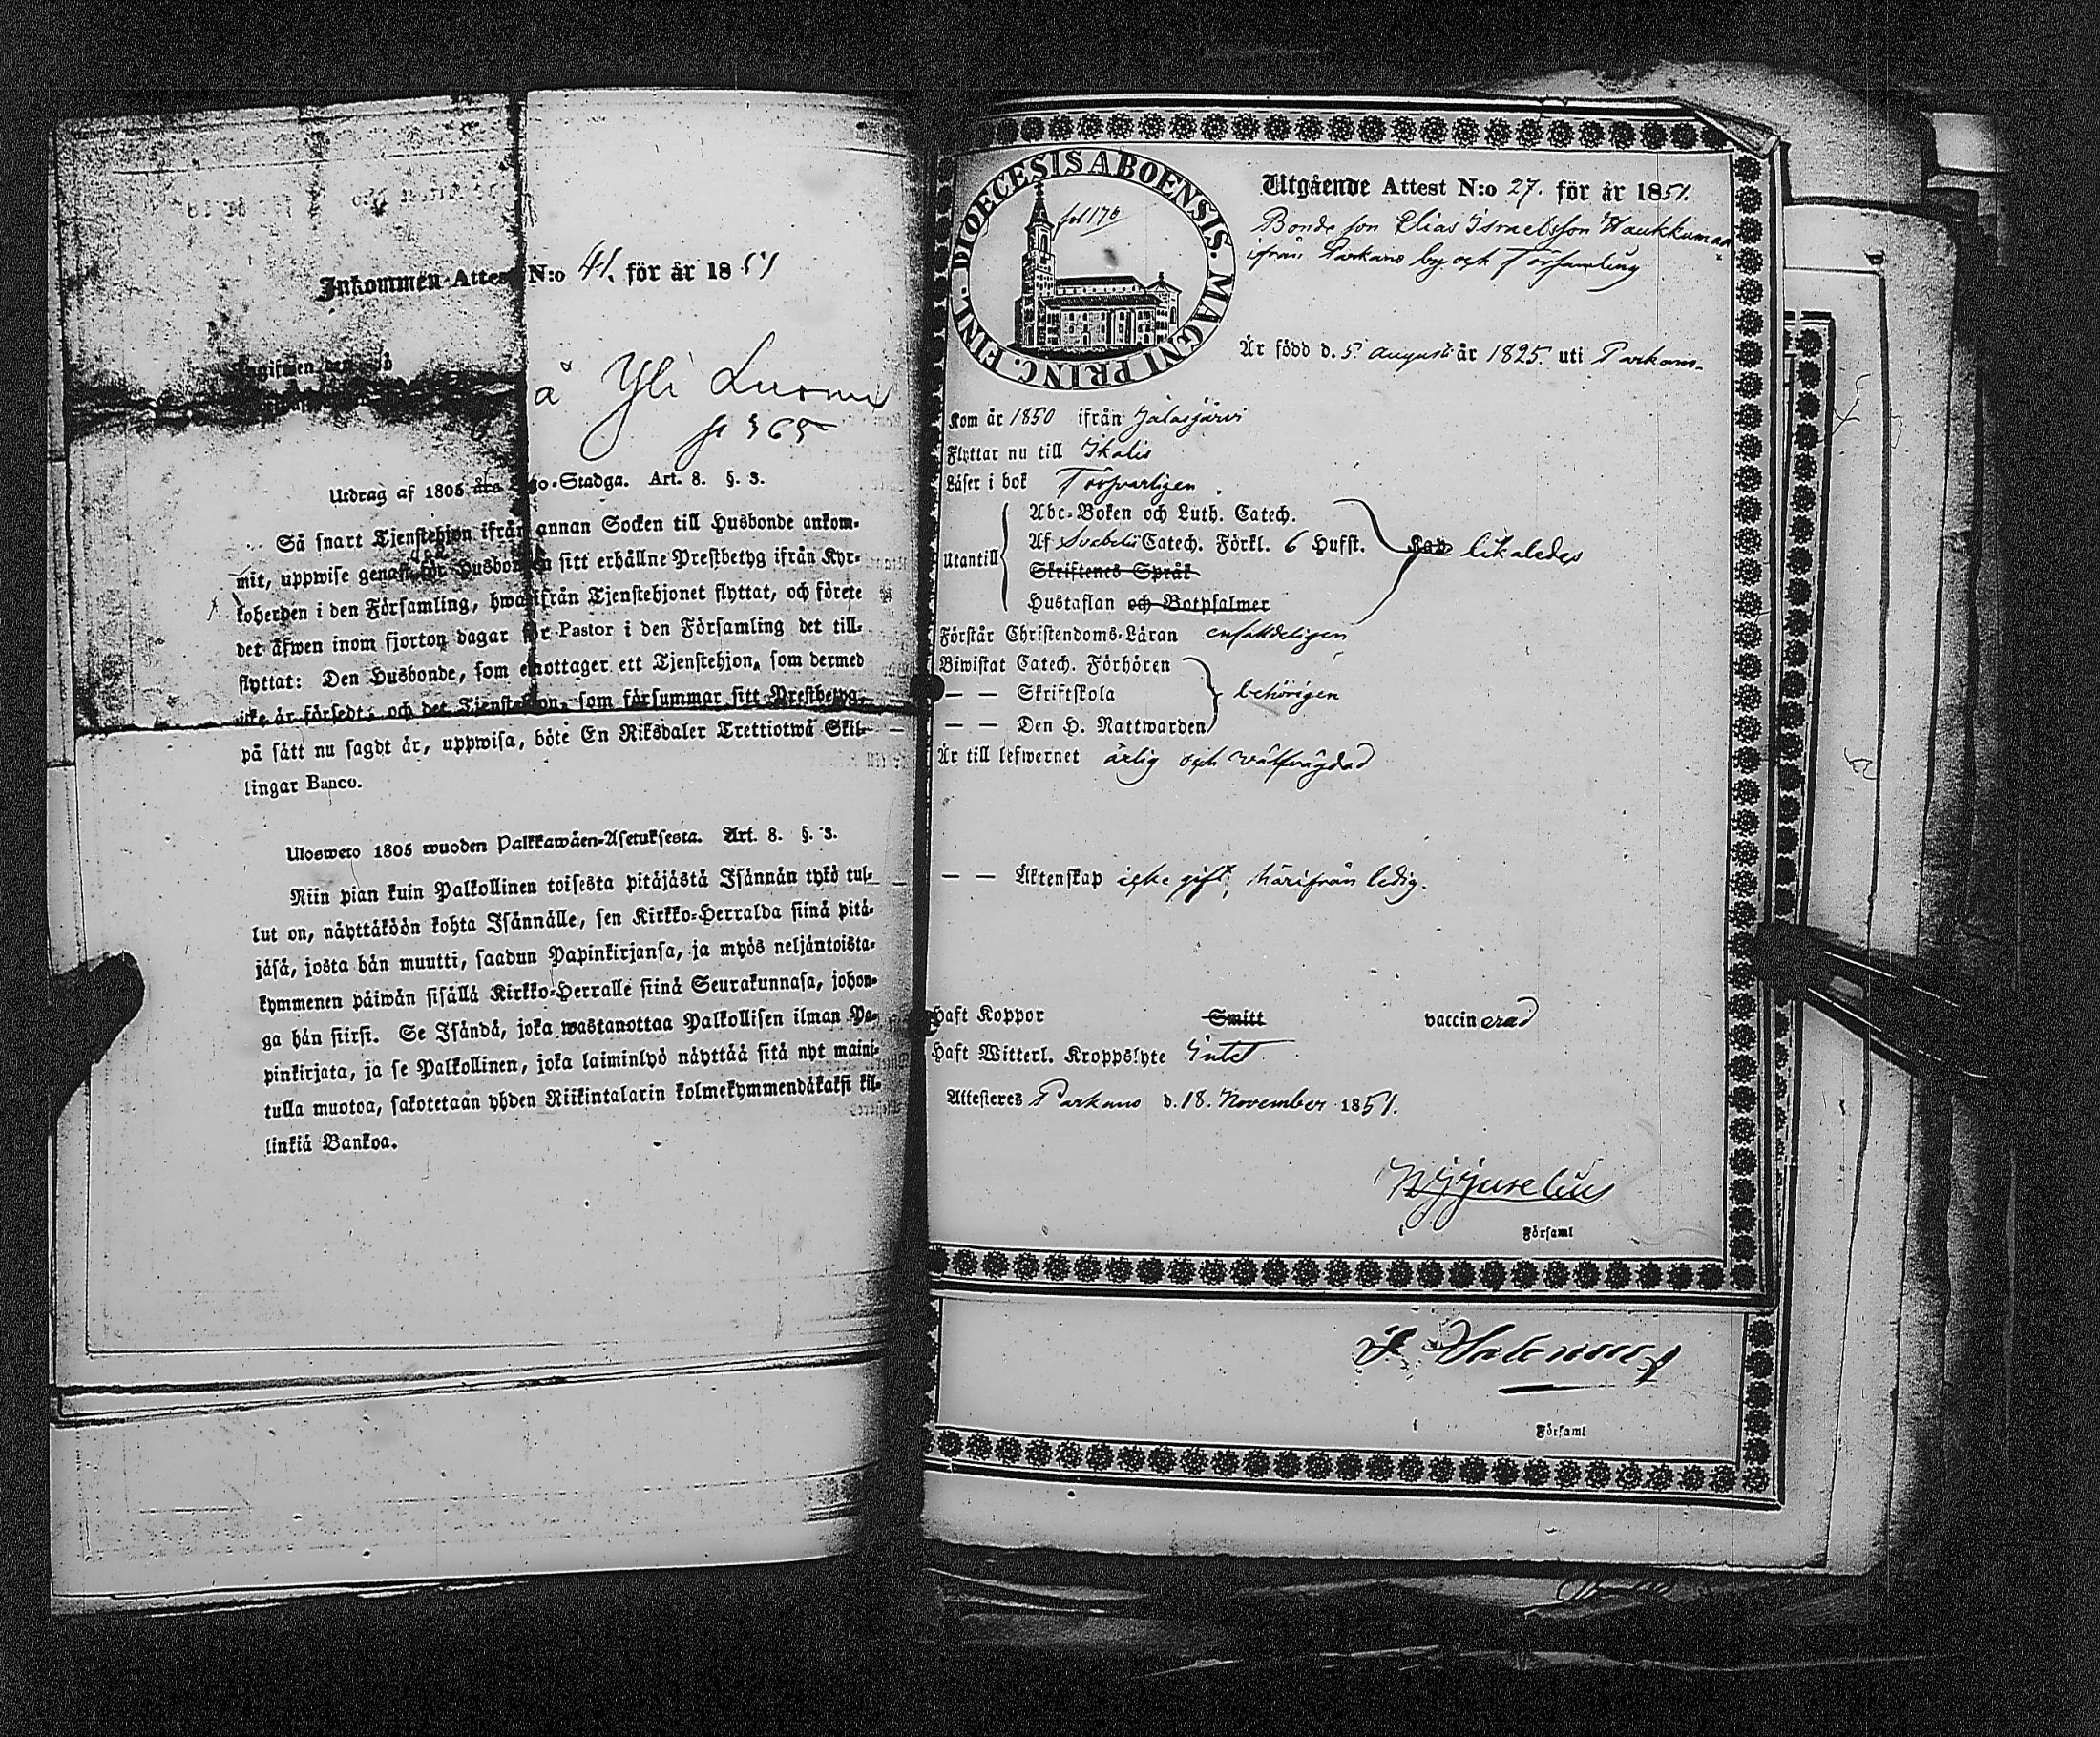 Inkommen Attest N:o 41. för år 1851
å Yli Luoma
fr 365
Utdrag af 1805 års Lego-Stadga. Art. 8. §. 3.
Så snart Tjenstehjon ifrån annan Socken till Husbonde ankom-
mit, uppwise genast för Husbonden sitt erhållne Prestbetyg ifrån Kyr-
koherden i den Församling, hwarifrån Tjenstehjonet flyttat, och förete
det äfwen inom fjorton dagar för Pastor i den Församling det till-
flyttat: Den Husbonde, som emottager ett Tjenstehjon, som dermed
icke är försedt, och det Tjenstehjon, som försummar sitt Prestbetyg,
på sätt nu sagdt är, uppwisa, böte En Riksdaler Trettiotwå Skil-
lingar Banco.
Ulosweto 1805 wuoden Palkkawäen-Asetuksesta. Art. 8. §. 3.
Niin pian kuin Palkollinen toisesta pitäjästä Isännän tykö tul-
lut on, näyttäköön kohta Isännälle, sen Kirkko-Herralda siinä pitä-
jäsä, josta hän muutti, saadun Papinkirjansa, ja myös neljäntoista-
kymmenen päiwän sisällä Kirkko-Herralle siinä Seurakunnasa, johon-
ga hän siirsi. Se Isändä, joka wastanottaa Palkollisen ilman Pa-
pinkirjata, ja se Palkollinen, joka laiminlyö näyttää sitä nyt maini-
tulla muotoa, sakotetaan yhden Riikintalarin kolmekymmendäkaksi kil-
linkiä Bankoa.
DIOECESIS ABOENSIS. MAGNI PRINC. FINL.
fol 176
Utgående Attest N:o 27. för år 1851.
Bonde son Elias Israelsson Haukkumaa
ifrån Parkano by och Församling
Är född d. 5. Augusti år 1825. uti Parkano.
Kom år 1850 ifrån Jalasjärvi
Flyttar nu till Ikalis
Läser i bok Försvarligen
Abc-Boken och Luth. Catech.
Utantill Af Svebelii Catech. Förkl. 6 Hufst. likaledes
Skriftenes Språk
Hustaflan och Botpsalmer
Förstår Christendoms-Läran enfaldeligen
Biwistat Catech. Förhören
— — Skriftskola behörigen
— — Den H. Nattwarden
Är till lefwernet ärlig och välfrägdad
— — Äktenskap icke gift, härifrån ledig.
Haft Koppor Smitt vaccinerad
Haft Witterl. Kroppslyte Intet
Attesteres Parkano d. 18. November 1851.
i Församl
i Församl